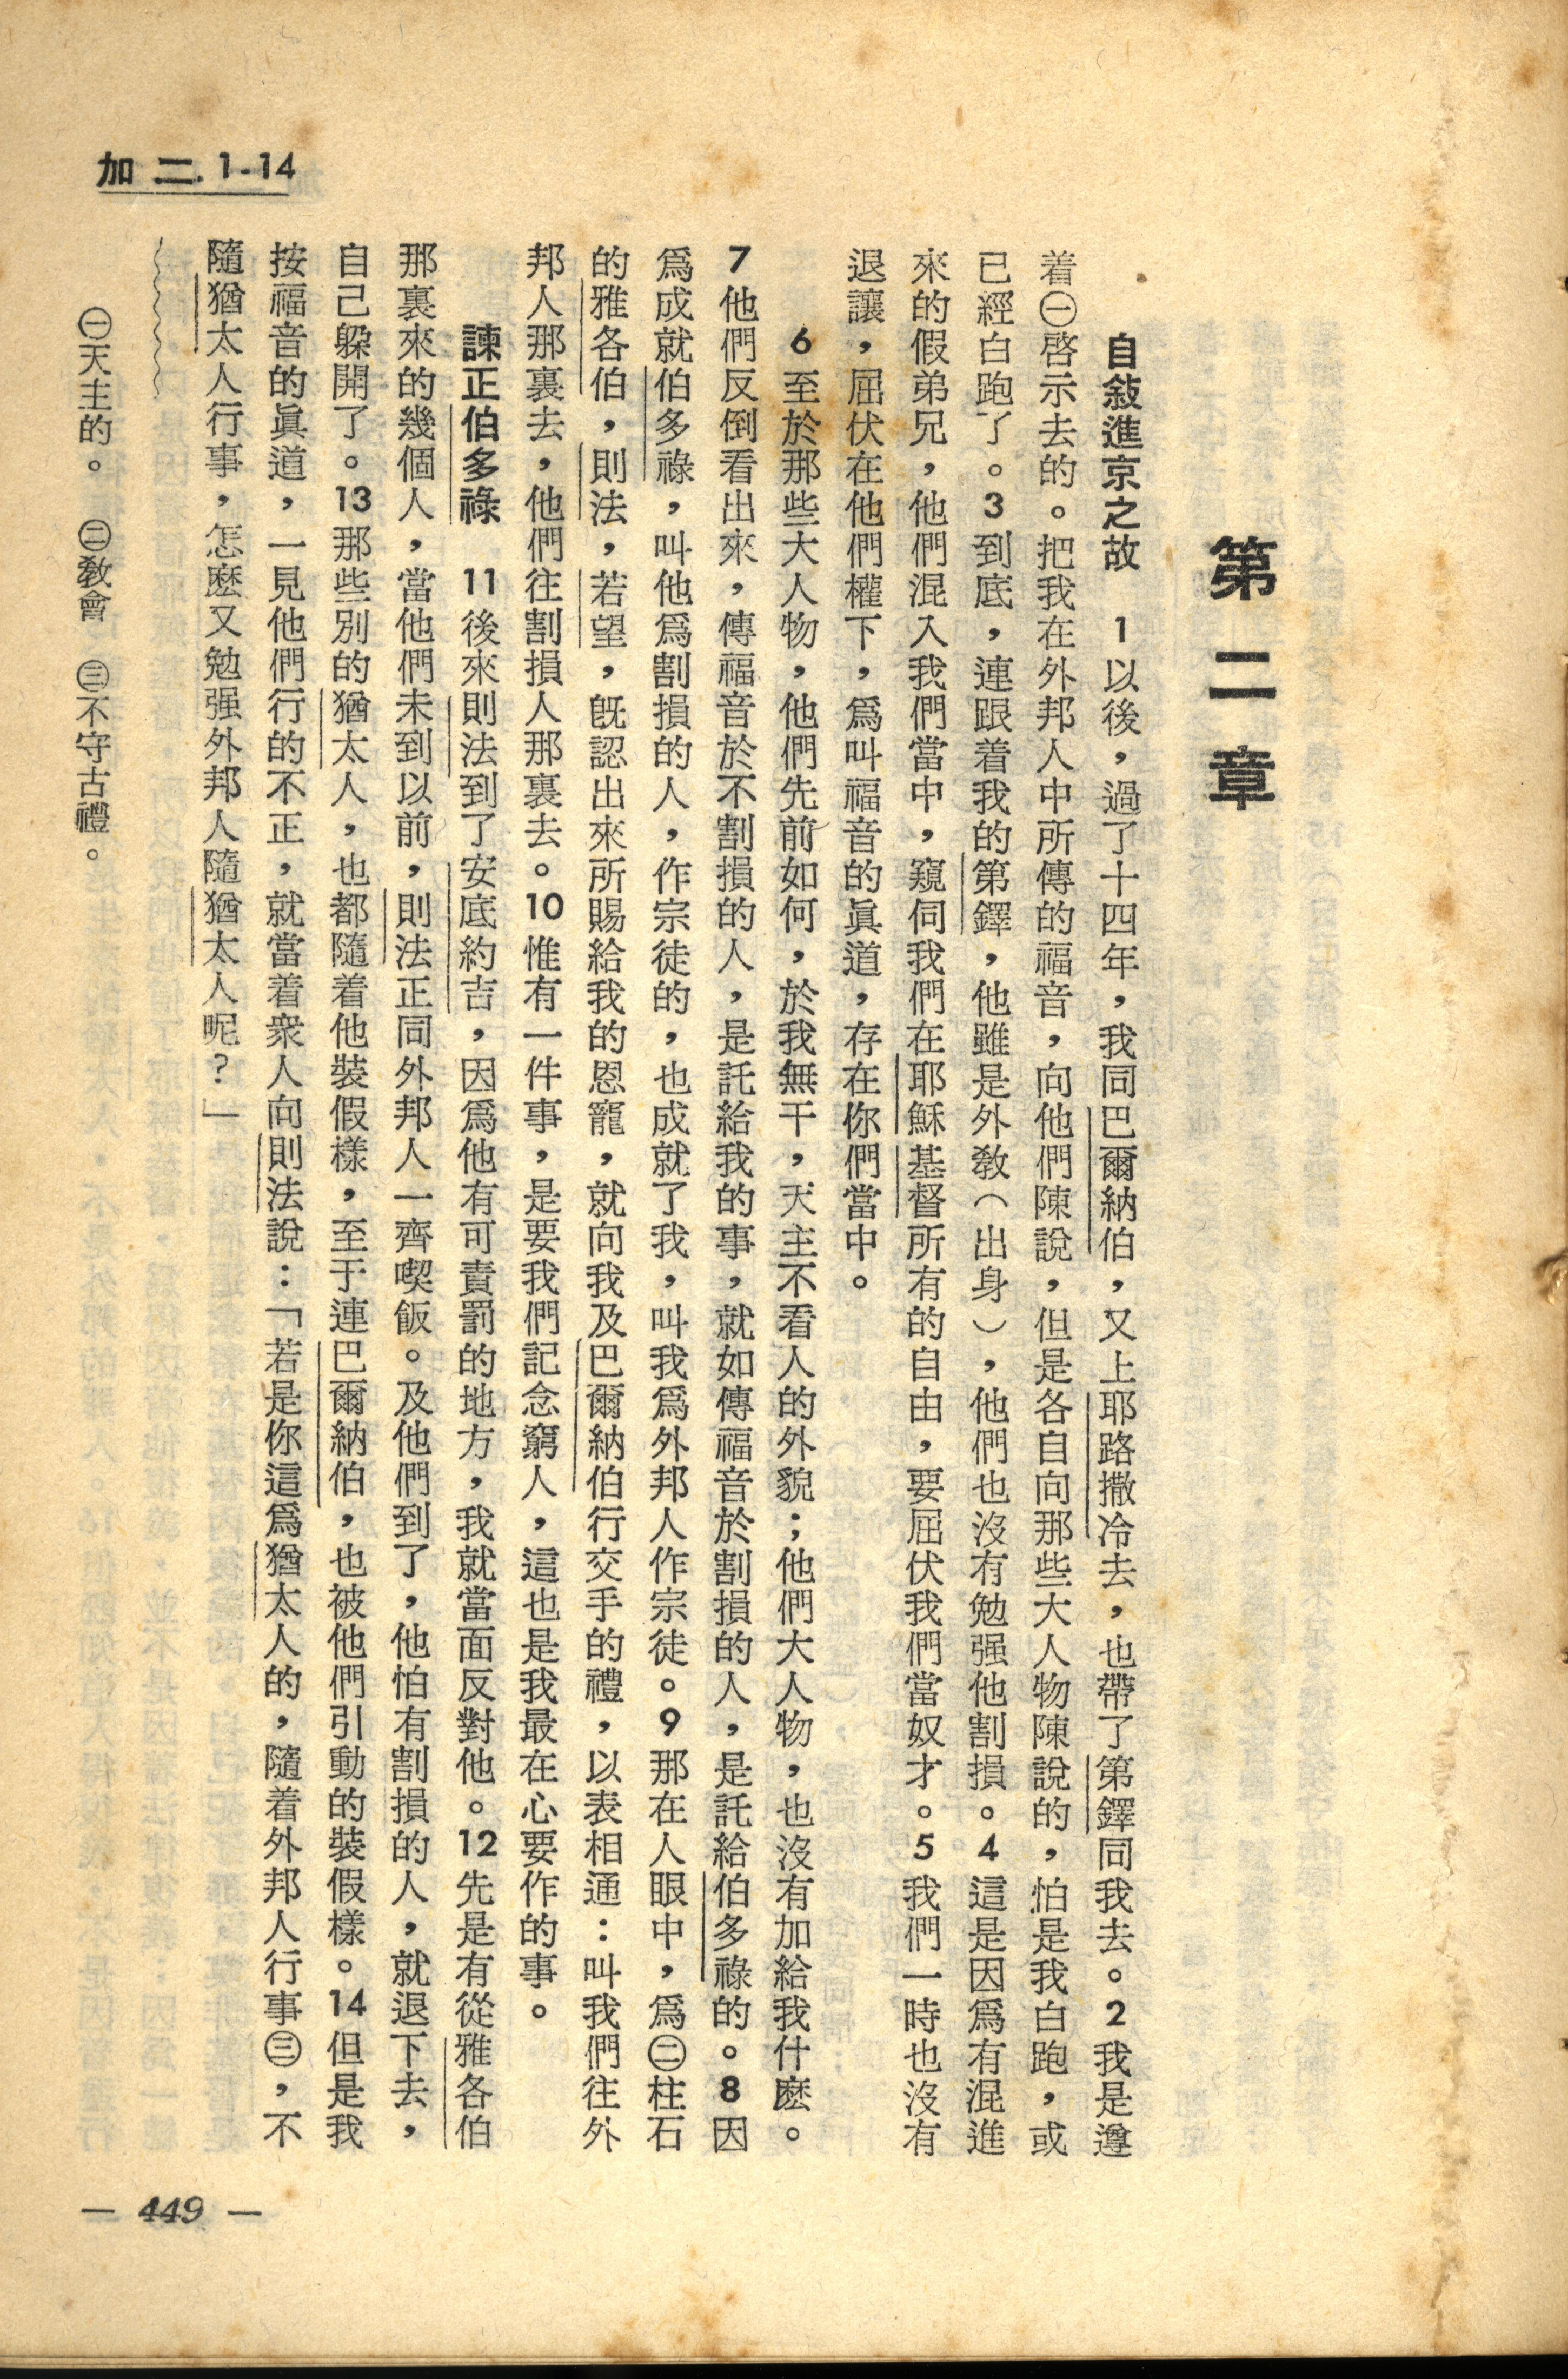 加二. 1-14
第二章
自敍進京之故　1以後，過了十四年，我同巴爾納伯，又上耶路撒冷去，也帶了第鐸同我去。2我是遵
着㊀啓示去的。把我在外邦人中所傳的福音，向他們陳說，但是各自向那些大人物陳說的，怕是我白跑，或
已經白跑了。3到底，連跟着我的第鐸，他雖是外敎（出身），他們也沒有勉强他割損。4這是因爲有混進
來的假弟兄，他們混入我們當中，窺伺我們在耶穌基督所有的自由，要屈伏我們當奴才。5我們一時也沒有
退讓，屈伏在他們權下，爲叫福音的眞道，存在你們當中。
6至於那些大人物，他們先前如何，於我無干，天主不看人的外貌；他們大人物，也沒有加給我什麽。
7他們反倒看出來，傳福音於不割損的人，是託給我的事，就如傳福音於割損的人，是託給伯多祿的。8因
爲成就伯多祿，叫他爲割損的人，作宗徒的，也成就了我，叫我爲外邦人作宗徒。9那在人眼中，爲㊁柱石
的雅各伯，則法，若望，旣認出來所賜給我的恩寵，就向我及巴爾納伯行交手的禮，以表相通：叫我們往外
邦人那裏去，他們往割損人那裏去。10惟有一件事，是要我們記念窮人，這也是我最在心要作的事。
諫正伯多祿　11後來則法到了安底約吉，因爲他有可責罰的地方，我就當面反對他。12先是有從雅各伯
那裏來的幾個人，當他們未到以前，則法正同外邦人一齊喫飯。及他們到了，他怕有割損的人，就退下去，
自己躱開了。13那些別的猶太人，也都隨着他裝假樣，至于連巴爾納伯，也被他們引動的裝假樣。14但是我
按福音的眞道，一見他們行的不正，就當着衆人向則法說：「若是你這爲猶太人的，隨着外邦人行事㊂，不
隨猶太人行事，怎麽又勉强外邦人隨猶太人呢？」
㊀天主的。　㊁敎會　㊂不守古禮。
— 449 —